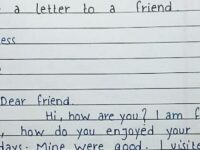 a letter to a friend.
ess
Dear friend.
Hi, how are you? I am f
, how do you enjoyed your
days. Mine were good. I visite